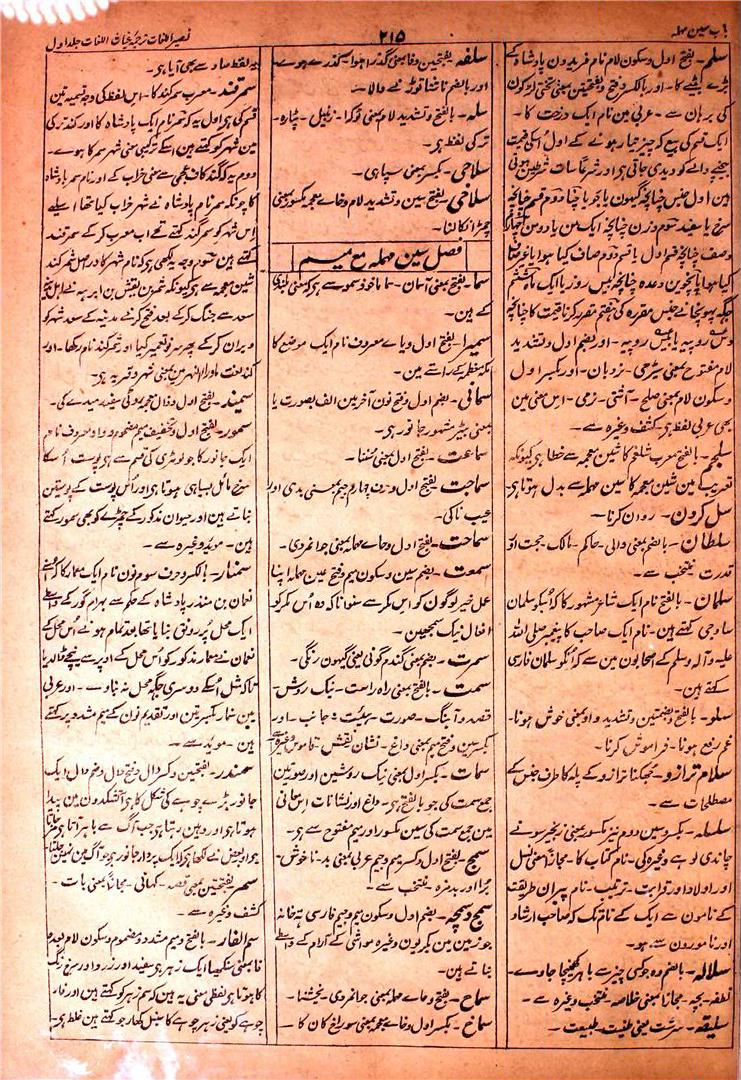 باب سین مہملہ
۲۱۵
نصیر اللغات ترجمہ غیاث اللغات جلد اول
سلم۔ بفتح اول وسکون لام نام فریدون بادشاہ کے
بڑے بیٹے کا۔ اور بالکسر وفتح وبفتحتین بمعنی
کی برہان سے۔ عربی مین نام ایک درخت کا۔
ایک قسم کی بیع کہ چیز تیار ہونے کے اول اسکی قیمت
بیچنے والے کو دیدی جاتی ہی اور شرعاً سات شرطین ہوتی
ہین اول جنس چنانچہ گیہون یا جو یا چنا دوم قسم چنانچہ
سرخ یا سفید سوم وزن چنانچہ ایک من یا دو من چہارم
وصف چنانچہ قسم اول یا قسم دوم صاف کیا ہوا یا غیر صاف
کیا ہوا پانچوین وعدہ چنانچہ بیس روز یا ایک ماہ ششم
جگہ پہونچانے جنس مقررہ کی ہفتم مقرر کرنا قیمت کا چنانچہ
دس روپیہ یا بیس روپیہ۔ اور بضم اول وتشدید
لام مفتوح بمعنی سیڑھی۔ نردبان۔ اور بکسر اول
وسکون لام بمعنی صلح۔ آشتی۔ نرمی۔ اس معنی مین
بھی عربی لفظ ہی۔ کشف وغیرہ سے۔
سلجم۔ بالفتح معرب شلغم کا شین معجمہ سے خطا ہی کیونکہ
تعریب مین شین معجمہ کا سین مہملہ سے بدل ہوتا ہی۔
سل کردن۔ روان کرنا۔
سلطان۔ بالضم بمعنی والی۔ حاکم۔ مالک۔ حجت اور
قدرت منتخب سے۔
سلمان۔ بالفتح نام ایک شاعر مشہور کا کہ اُسکو سلمان
ساوجی کہتے ہین۔ نام ایک صاحب کا پیغمبر صلی اللہ
علیہ وآلہ وسلم کے اصحابون مین سے کہ اُنکو سلمان فارسی
کہتے ہین۔
سلو۔ بالفتح وبضمتین وتشدید واو بمعنی خوش ہونا۔
غم رفع ہونا۔ فراموش کرنا۔
سلام ترازو۔ جھکنا ترازو کے پلہ کا طرف جنس کے
مصطلحات سے۔
سلسلہ۔ بکسر سین دوم نیز مکسور بمعنی زنجیر سونے
چاندی لوہے وغیرہ کی۔ نام کتاب کا۔ مجازاً بمعنی نسل
اور اولاد اور قرابت۔ ترتیب۔ نام پیران طریقت
کے نامون سے ایک کے نام تک کہ صاحب ارشاد
اور نامورون سے ہو۔
سلالہ۔ بالضم وہ جو کسی چیز سے باہر کھینچا جاوے۔
نطفہ۔ بچہ۔ مجازاً بمعنی خلاصہ۔ منتخب وغیرہ سے۔
سلیقہ۔ سرشت یعنی طینت۔ طبیعت۔
سلفہ۔ بفتحتین وفا بمعنی گذرا ہوا۔ گذرے ہوے۔
اور بالضم ناشتا توڑنے والا۔
سلہ۔ بالفتح وتشدید لام بمعنی ٹوکرا۔ زنبیل۔ پٹارہ۔
ترکی لفظ ہی۔
سلاحی۔ بکسر بمعنی سپاہی۔
سلاخی۔ بفتح سین وتشدید لام وخاے معجمہ مکسور بمعنی
چمڑا نکالنا۔
فصل سین مہملہ مع میم
سما۔ بفتح بمعنی آسمان۔ سما ماخوذ سمو سے ہی کہ بمعنی بلندی
کے ہین۔
سمیرا۔ بفتح اول ویاے معروف نام ایک موضع کا
مکہ معظمہ کے راستے مین۔
سمانی۔ بضم اول وفتح نون آخر مین الف بصورت یا
بمعنی بٹیر مشہور جانور ہی۔
سماعت۔ بفتح اول بمعنی سننا۔
سماجت۔ بفتح اول وحرف چہارم جیم بمعنی بدی اور
عیب ناکی۔
سماحت۔ بفتح اول وحاے مہملہ بمعنی جوانمردی۔
سمعت۔ بضم سین وسکون میم وفتح عین مہملہ اپنا
عمل خیر لوگون کو اس فکر سے سنوانا کہ وہ اُس کمر کو
افعال نیک سمجھین۔
سمرت۔ بضم بمعنی گندم گونی یعنی گیہون رنگی۔
سمت۔ بالفتح بمعنی راہ راست۔ نیک روش۔
قصد وآہنگ۔ صورت۔ ہیئت۔ جانب۔ اور
بکسر سین وفتح میم بمعنی داغ۔ نشان۔ نقش۔ قاموس وغیرہ سے
سمات۔ بکسر اول بمعنی نیک روشین اور صورتین
جمع سمت کی جو بالفتح ہی۔ داغ اور نشانات اس معانی
مین جمع سمت کی سین مکسور اور میم مفتوح سے ہی۔
سمج۔ بفتح اول وکسر میم وجیم عربی بمعنی بد۔ ناخوش۔
برا اور بدمزہ۔ منتخب سے۔
سمج وسمچہ۔ بضم اول وسکون میم وجیم فارسی تہ خانہ
جو زمین مین بکریون وغیرہ مواشی کے آرام کے واسطے
بناتے ہین۔
سماح۔ بفتح وحاے مہملہ بمعنی جوانمردی۔ بخشنا۔
سماخ۔ بکسر اول وخاے معجمہ بمعنی سوراخ کان کا۔
یہ لفظ صاد سے بھی آیا ہی۔
سمرقند۔ معرب سمرکند کا۔ اس لفظ کی وجہ تسمیہ تین
قسم کی ہی اول یہ کہ سمر نام ایک بادشاہ کا اور کند ترکی
مین شہر کو کہتے ہین اسکے ترکیبی معنی شہر سمر کا ہوے۔
دوم یہ کہ کند کاف عجمی سے معنی خراب کے اور نام سمر بادشاہ
کا چونکہ سمر نام بادشاہ نے شہر خراب کیا تھا اسلیے
اِس شہر کو سمرکند کہتے تھے اب معرب کر کے سمرقند
کہتے ہین سوم وجہ یہ لکھی ہی کہ نام شہر کا دراصل شمرکند
شین معجمہ سے ہی کیونکہ شمر بن افریقش بن ابرہہ نے اہل
سغد سے جنگ کر کے بعد فتح کرنے مدینہ کے سغد شہر کو
ویران کر کے پھر سر نو تعمیر کیا اور شمرکند نام رکھا۔ اور
کند لغت ماوراء النہر مین بمعنی شہر وقریہ ہی۔
سمید۔ بفتح اول وذال معجمہ روٹی سفید میدے کی۔
سمور۔ بفتح اول وتخفیف میم مضموم وواو معروف نام
ایک جانور کا جو لومڑی کی قسم سے ہی پوست اُسکا
سرخ مائل بسیاہی ہوتا ہی اور اُس پوست کے پوستین
بناتے ہین اور حیوان مذکور کے چمڑے کو بھی سمور کہتے
ہین۔ موید وغیرہ سے۔
سمنار۔ بالکسر وحرف سوم نون نام ایک معمار کا کہ اُسنے
نعمان بن منذر بادشاہ کے حکم سے بہرام گور کے واسطے
ایک محل پُر رونق بنایا تھا بعد تمام ہونے اُس محل کے
نعمان نے معمار مذکور کو اُس محل کے اوپر سے نیچے ڈالدیا
تاکہ مثل اُسکے دوسری جگہ محل نہ بناوے۔ اور عربی
مین سنمار بکسرتین اور تقدیم نون کے میم مشدد پر کہتے
ہین۔ موید سے۔
سمندر۔ بفتحتین وکسر دال وفتح دال وضم دال ایک
جانور بڑے چوہے کی شکل کا ہی آتشکدون مین پیدا
ہوتا ہی اور وہین رہتا ہی جب آگ سے باہر آتا ہی مر جاتا
ہی اور بعض نے لکھا ہی کہ ایک پردار جانور ہی جو آگ مین نہین جلتا
سمر۔ بفتحتین بمعنی قصہ۔ کہانی۔ مجازاً بمعنی بات۔
کشف وغیرہ سے۔
سم الفار۔ بالفتح ومیم مشدد ومضموم وسکون لام بعدہ
فا بمعنی سنکھیا ایک زہر ہی سفید اور زرد اور سرخ رنگ
کا ہوتا ہی لفظی معنی یہ ہین کہ سم زہر کو کہتے ہین اور فار
چوہے کو یعنی زہر چوہے کا سنبل کھار جو کہتے ہین غلط ہی۔